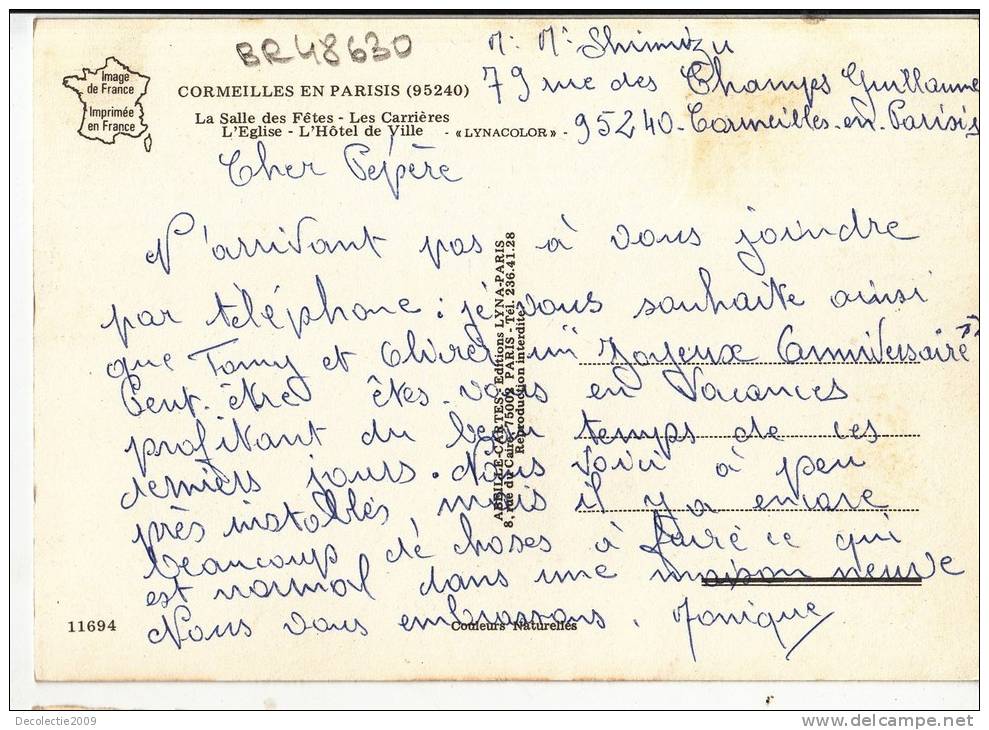 BR48630
Mr Me Shimizu
79 rue des Champs Guillaume
95240. Cormeilles-en-Parisis
Image
de France
Imprimée
en France
CORMEILLES EN PARISIS (95240)
La Salle des Fêtes - Les Carrières
L'Eglise - L'Hôtel de Ville - «LYNACOLOR» -
Cher Pépère
N'arrivant pas à vous joindre
par téléphone: je vous souhaite ainsi
que Tomy et Olivier un "Joyeux Anniversaire"
Peut-être êtes-vous en vacances
profitant du beau temps de ces
derniers jours. Nous voici à peu
près installés, mais il y a encore
beaucoup de choses à faire ce qui
est normal dans une maison neuve
Nous vous embrassons. Monique
ABEILLE-CARTES - Editions LYNA-PARIS
8, rue du Caire, 75002 PARIS - Tél. 236.41.28
Reproduction interdite
11694
Couleurs Naturelles
Decolectie2009
http://www.delcampe.net